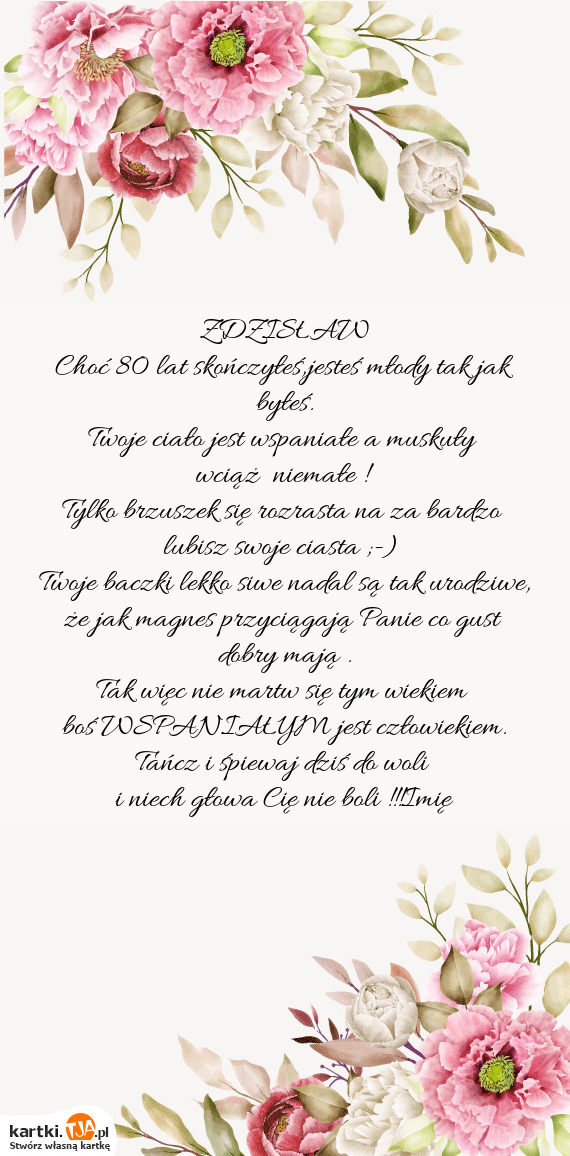 ZDZISŁAW
Choć 80 lat skończyłeś,jesteś młody tak jak
byłeś.
Twoje ciało jest wspaniałe a muskuły
wciąż niemałe !
Tylko brzuszek się rozrasta na za bardzo
lubisz swoje ciasta ;-)
Twoje baczki lekko siwe nadal są tak urodziwe,
że jak magnes przyciągają Panie co gust
dobry mają .
Tak więc nie martw się tym wiekiem
boś WSPANIAŁYM jest człowiekiem.
Tańcz i śpiewaj dziś do woli
i niech głowa Cię nie boli !!!Imię
kartki.TJA.pl
Stwórz własną kartkę